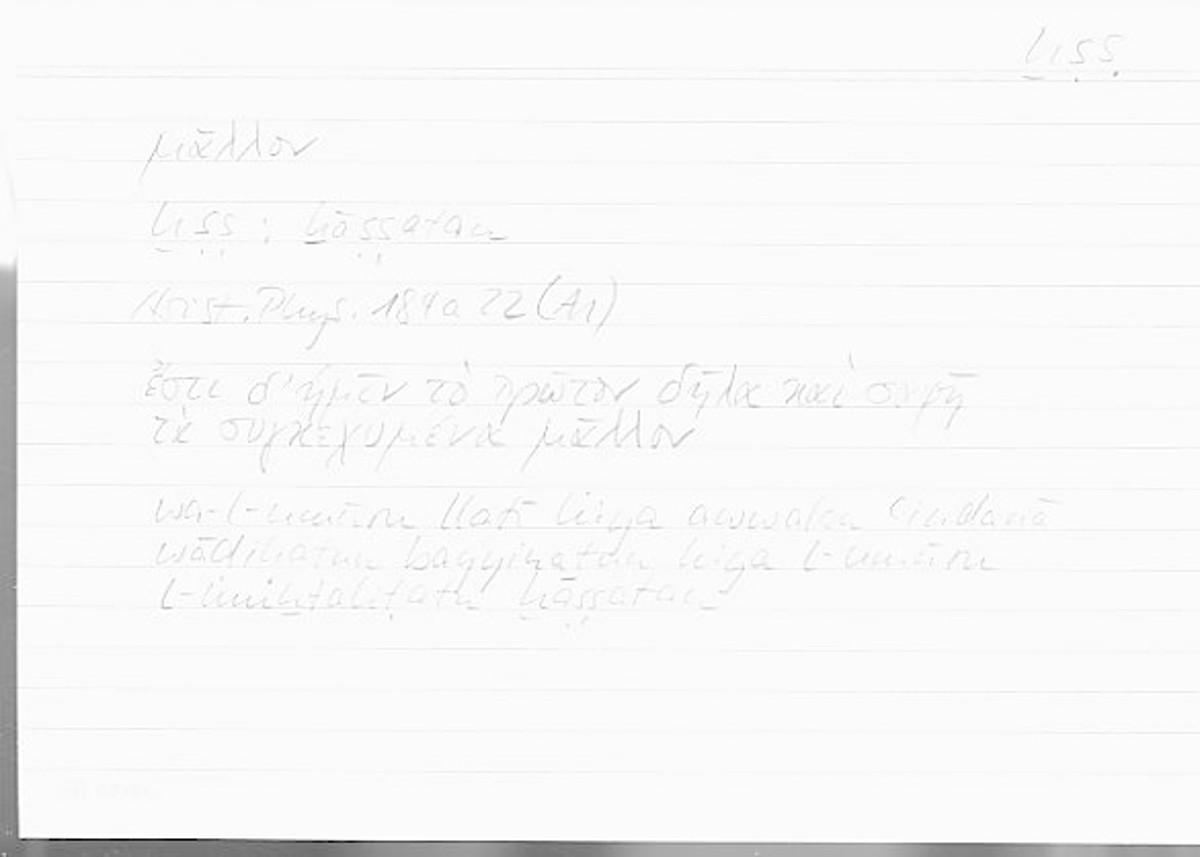 ḫṣṣ
μᾶλλον
ḫṣṣ : ḫāṣṣatan
Arist. Phys. 184a 22 (A1)
ἔστι δ' ἡμῖν τὸ πρῶτον δῆλα καὶ σαφῆ
τὰ συγκεχυμένα μᾶλλον
wa-l-umūru llatī hiya awwalan ʿindanā
wāḍiḥatun bayyinatun hiya l-umūru
l-muḫtaliṭatu ḫāṣṣatan